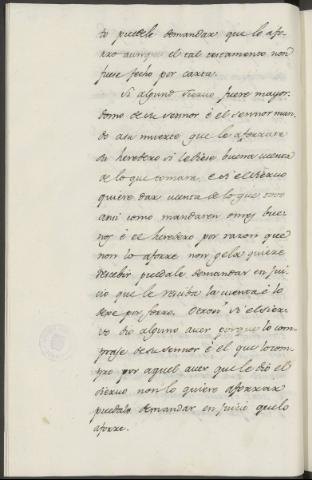 to puedelo demandar que lo afo-
rro aunque el tal testamento non
fuese fecho por carta.
Si algund siervo fuere mayor-
domo de su sennor è el sennor man-
do a su muerte que le aforrara
su heredero si le diese buena cuenta
de lo que tomara, e si el siervo
quiere dar cuenta de lo que tovo
ansi como mandaren omes bue-
nos è el heredero por razon que
non lo aforre non gela quiere
rescebir puedalo demandar en jui-
cio que le resciba la cuenta è lo
dexe por forro. Otrosi si el sier-
vo dio alguno aver porque lo com-
prase de su sennor è el que lo com-
pro por aquel aver que le diò el
siervo non lo quiere aforrar
puedalo demandar en juicio quelo
aforre.